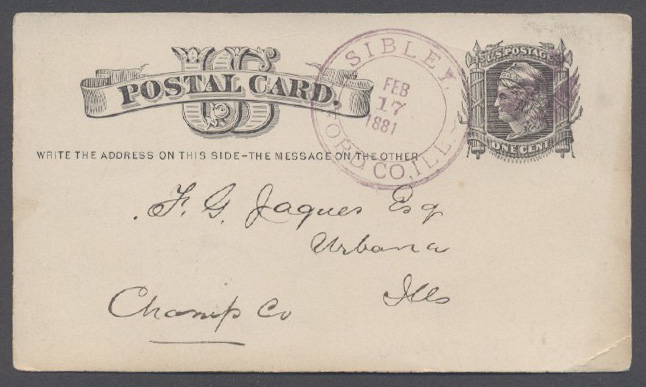 US
POSTAL CARD.
WRITE THE ADDRESS ON THIS SIDE-THE MESSAGE ON THE OTHER
SIBLEY,
FEB
17
1881
FORD CO, ILL.
U.S. POSTAGE
ONE CENT
F. G. Jaques Esq
Urbana
Ills
Champ Co